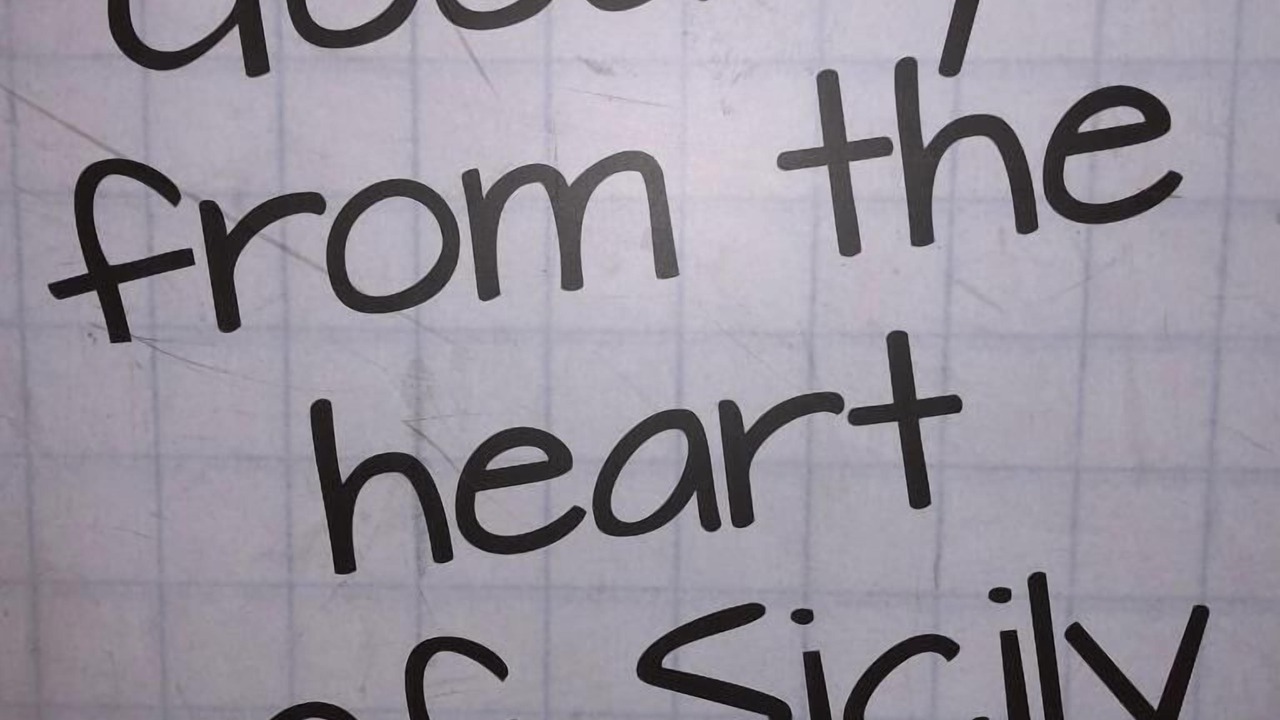 from the
heart
of Sicily